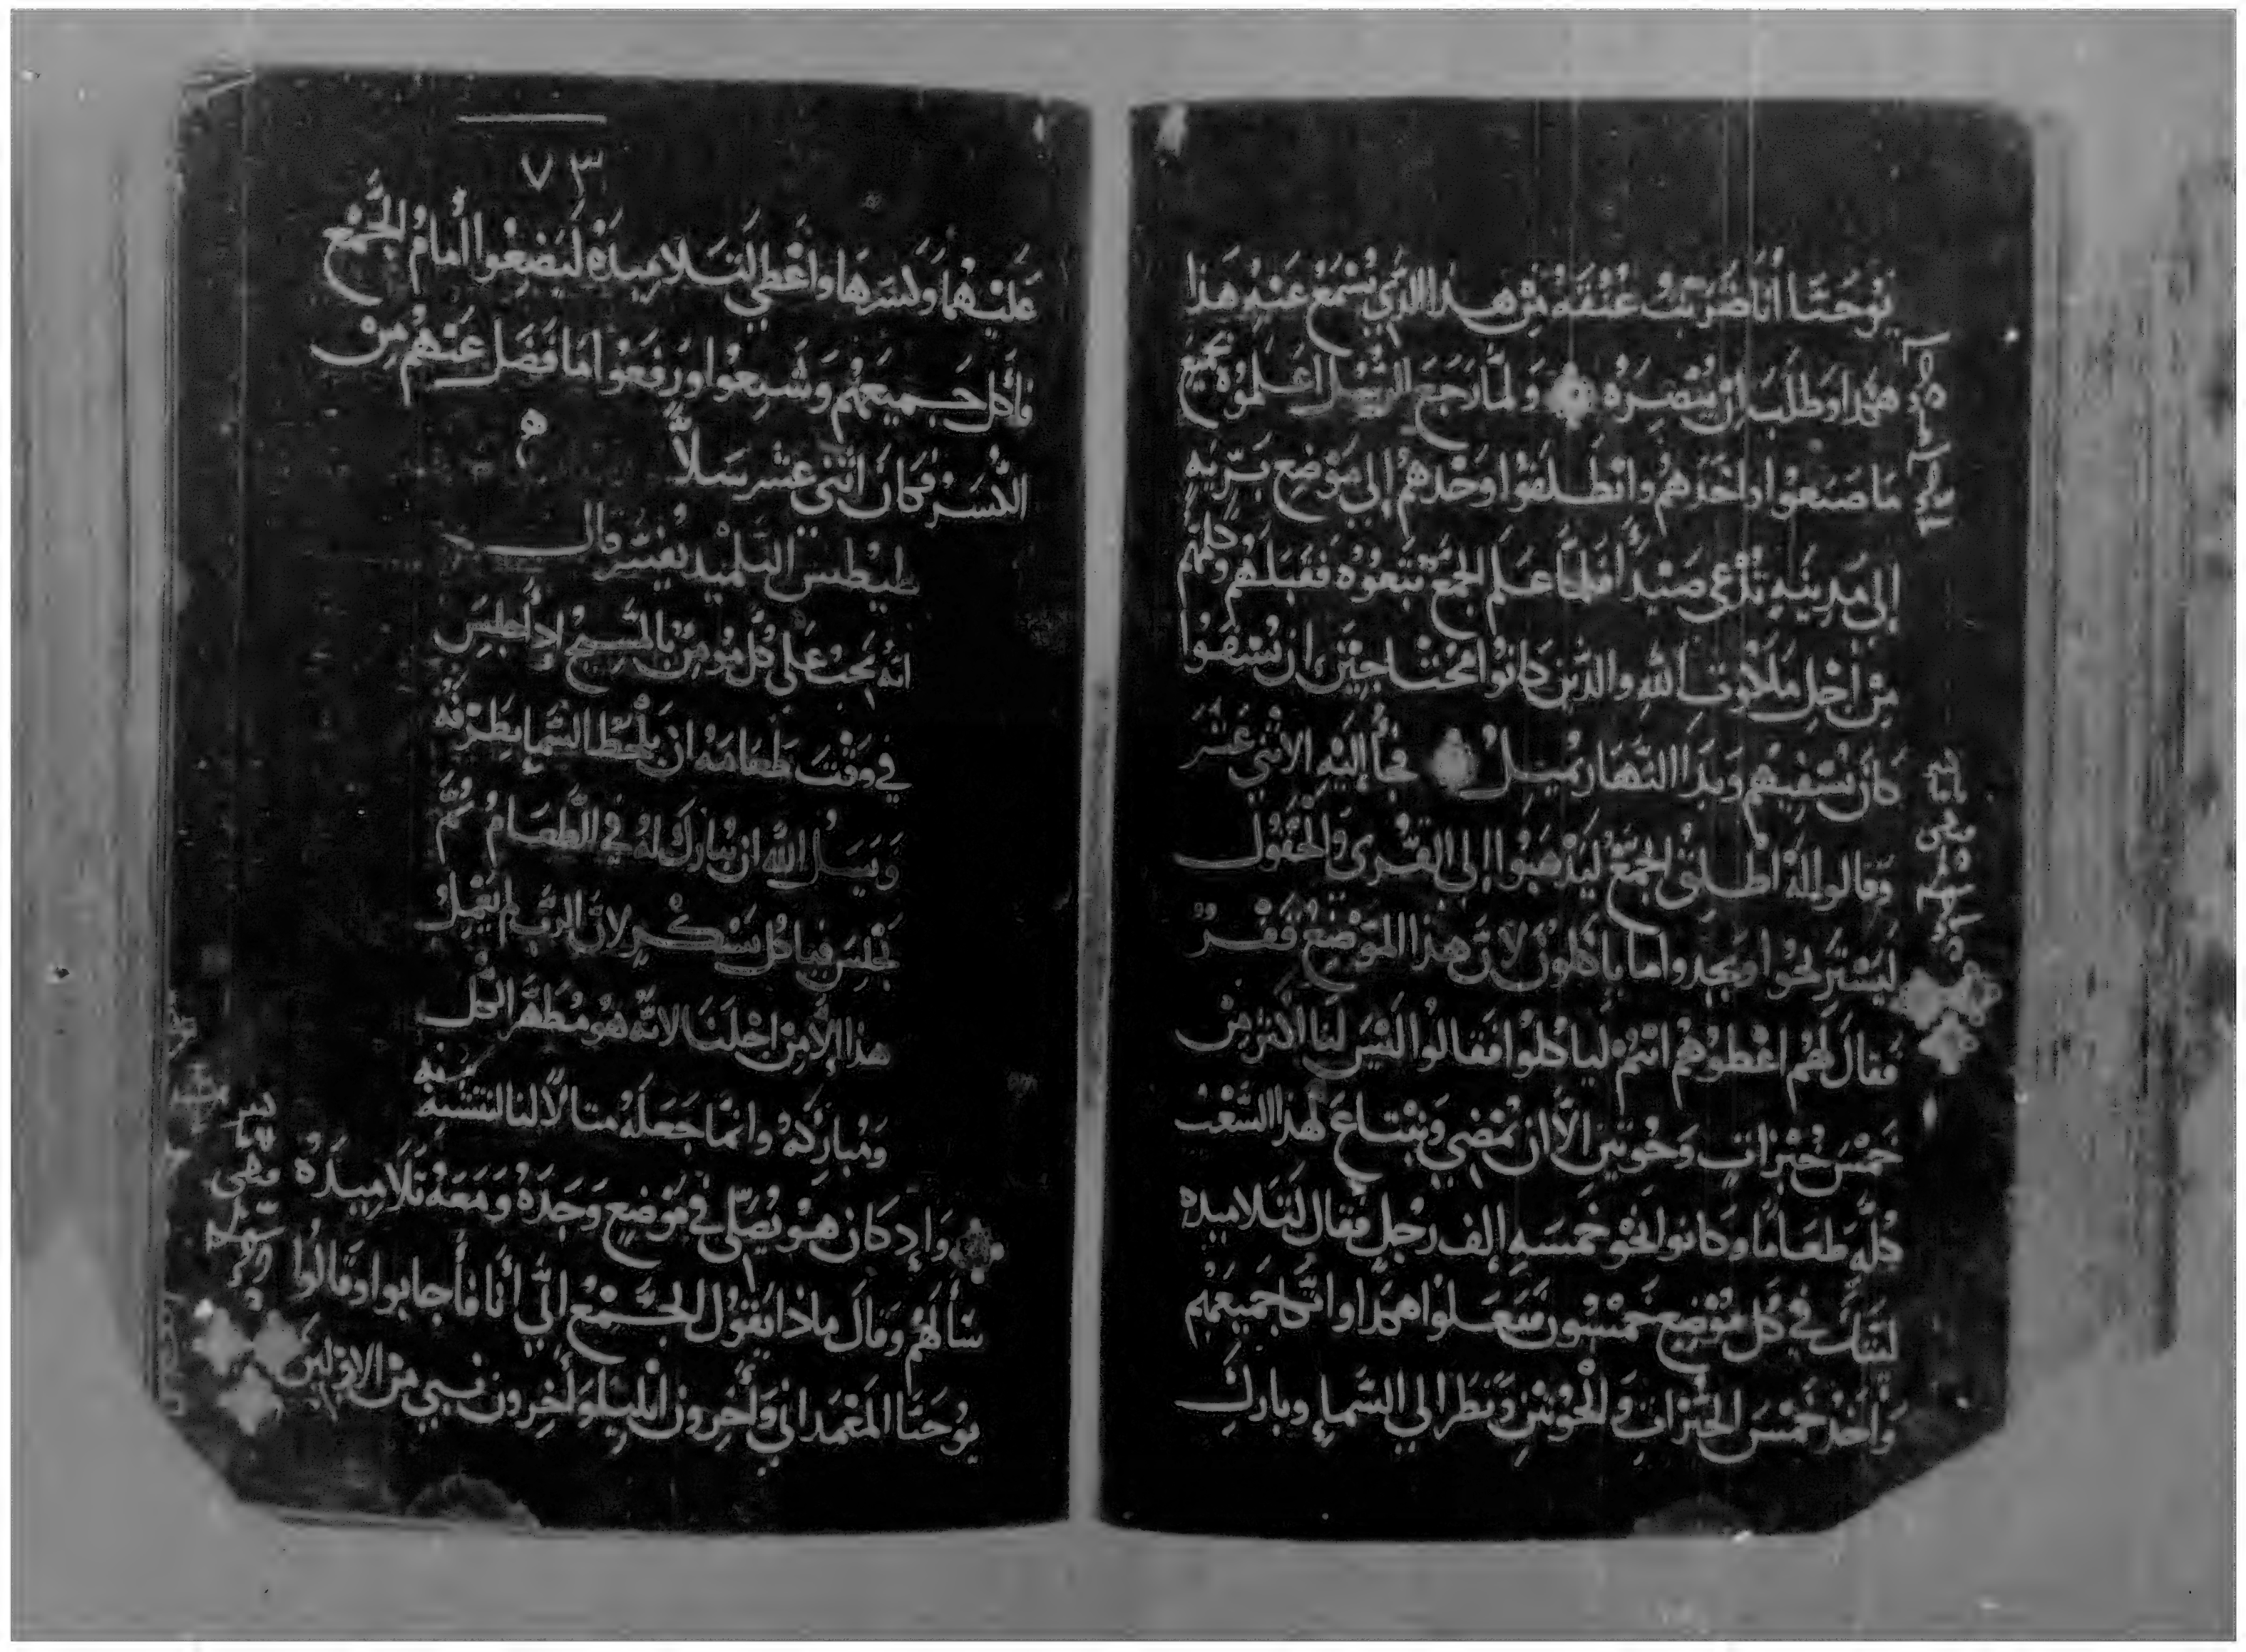 يوحنا أنا ضربت عنقه من هذا الذي نسمع عنه هذا
هكذا وطلب ان ينصره ولما رجع الرسل اعلموه بجميع
ما صنعوا واخدهم وانطلقوا وحدهم إلى موضع بريه
إلى مدينه تدعى صيدا فلما علم الجمع تبعوه فقبلهم وكلمهم
من اجل ملكوت الله والدين كانوا محتاجين ان يشفوا
كان يشفيهم وبدا النهار يميل فجأ إليه الاثني عشر
وقالوا له اطلق الجمع ليذهبوا إلى القرى والحقول
ليستريحوا ويجدوا ما ياكلون لان هذا الموضع قفر
فقال لهم اعطوهم انتم لياكلوا فقالوا ليس لنا اكثر من
خمس خبزات وحوتين الا ان نمضي ونبتاع لهذا الشعب
كله طعاما وكانوا نحو خمسه الف رجل فقال لتلاميده
لتتك في كل موضع خمسون ففعلوا هكدا واتكا جميعهم
وأخد خمس الخبزات والحوتين ونظر الي السماء وبارك
٧٣
عليهما وكسرها واعطي لتلاميده ليضعوا أمام الجمع
فأكل جميعهم وشبعوا ورفعوا ما فضل عنهم من
الكسر فكان اثني عشر سلاً
طيطس التلميد يفسر قال
انه يجب على كل مومن بالمسيح اداجلس
في وقت طعامه ان يلحظ السما بطرفه
ويسل الله ان يبارك له في الطعام ثم
يجلس فياكل بشكر لان الرب لم يعمل
هذا إلا من اجلنا لانه هو مطهر الكل
ومباركه وانما جعله مثالا لنا لنتشبه
به
وإد كان هو يصلي في موضع وحده ومعه تلاميده
سألهم وقال ماذا يقول الجمع اني أنا فأجابوا وقالوا
يوحنا المعمداني وأخرون ايليا وأخرون نبي من الاولين